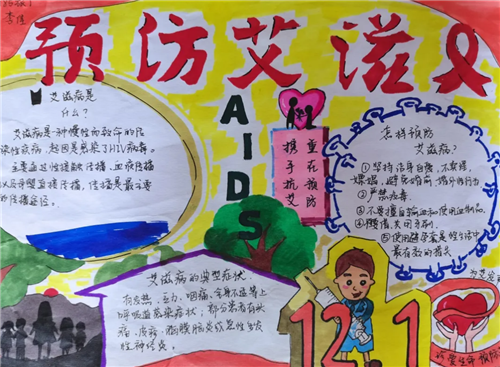 李佳
预防艾滋
AIDS
艾滋病是
什么？
艾滋病是一种慢性而致命的传
染性疾病，起因是感染了HIV病毒。
主要通过性接触传播、血液传播
以及母婴直接传播，性传播是最主要
的传播途径。
重在预防
携手抗艾
怎样预防
艾滋病？
①坚持洁身自爱，不卖淫，
嫖娼，避免婚前、婚外性行为
②严禁吸毒，
③不要擅自输血和使用血制品，
④
⑤使用避孕套是性生活中
最有效的措施
艾滋病的典型症状
有发热、乏力、咽痛、全身不适等上
呼吸道感染症状，部分患者有头
痛、皮疹、脑膜脑炎或急性多发
性神经炎。
12 1
珍爱生命 预防